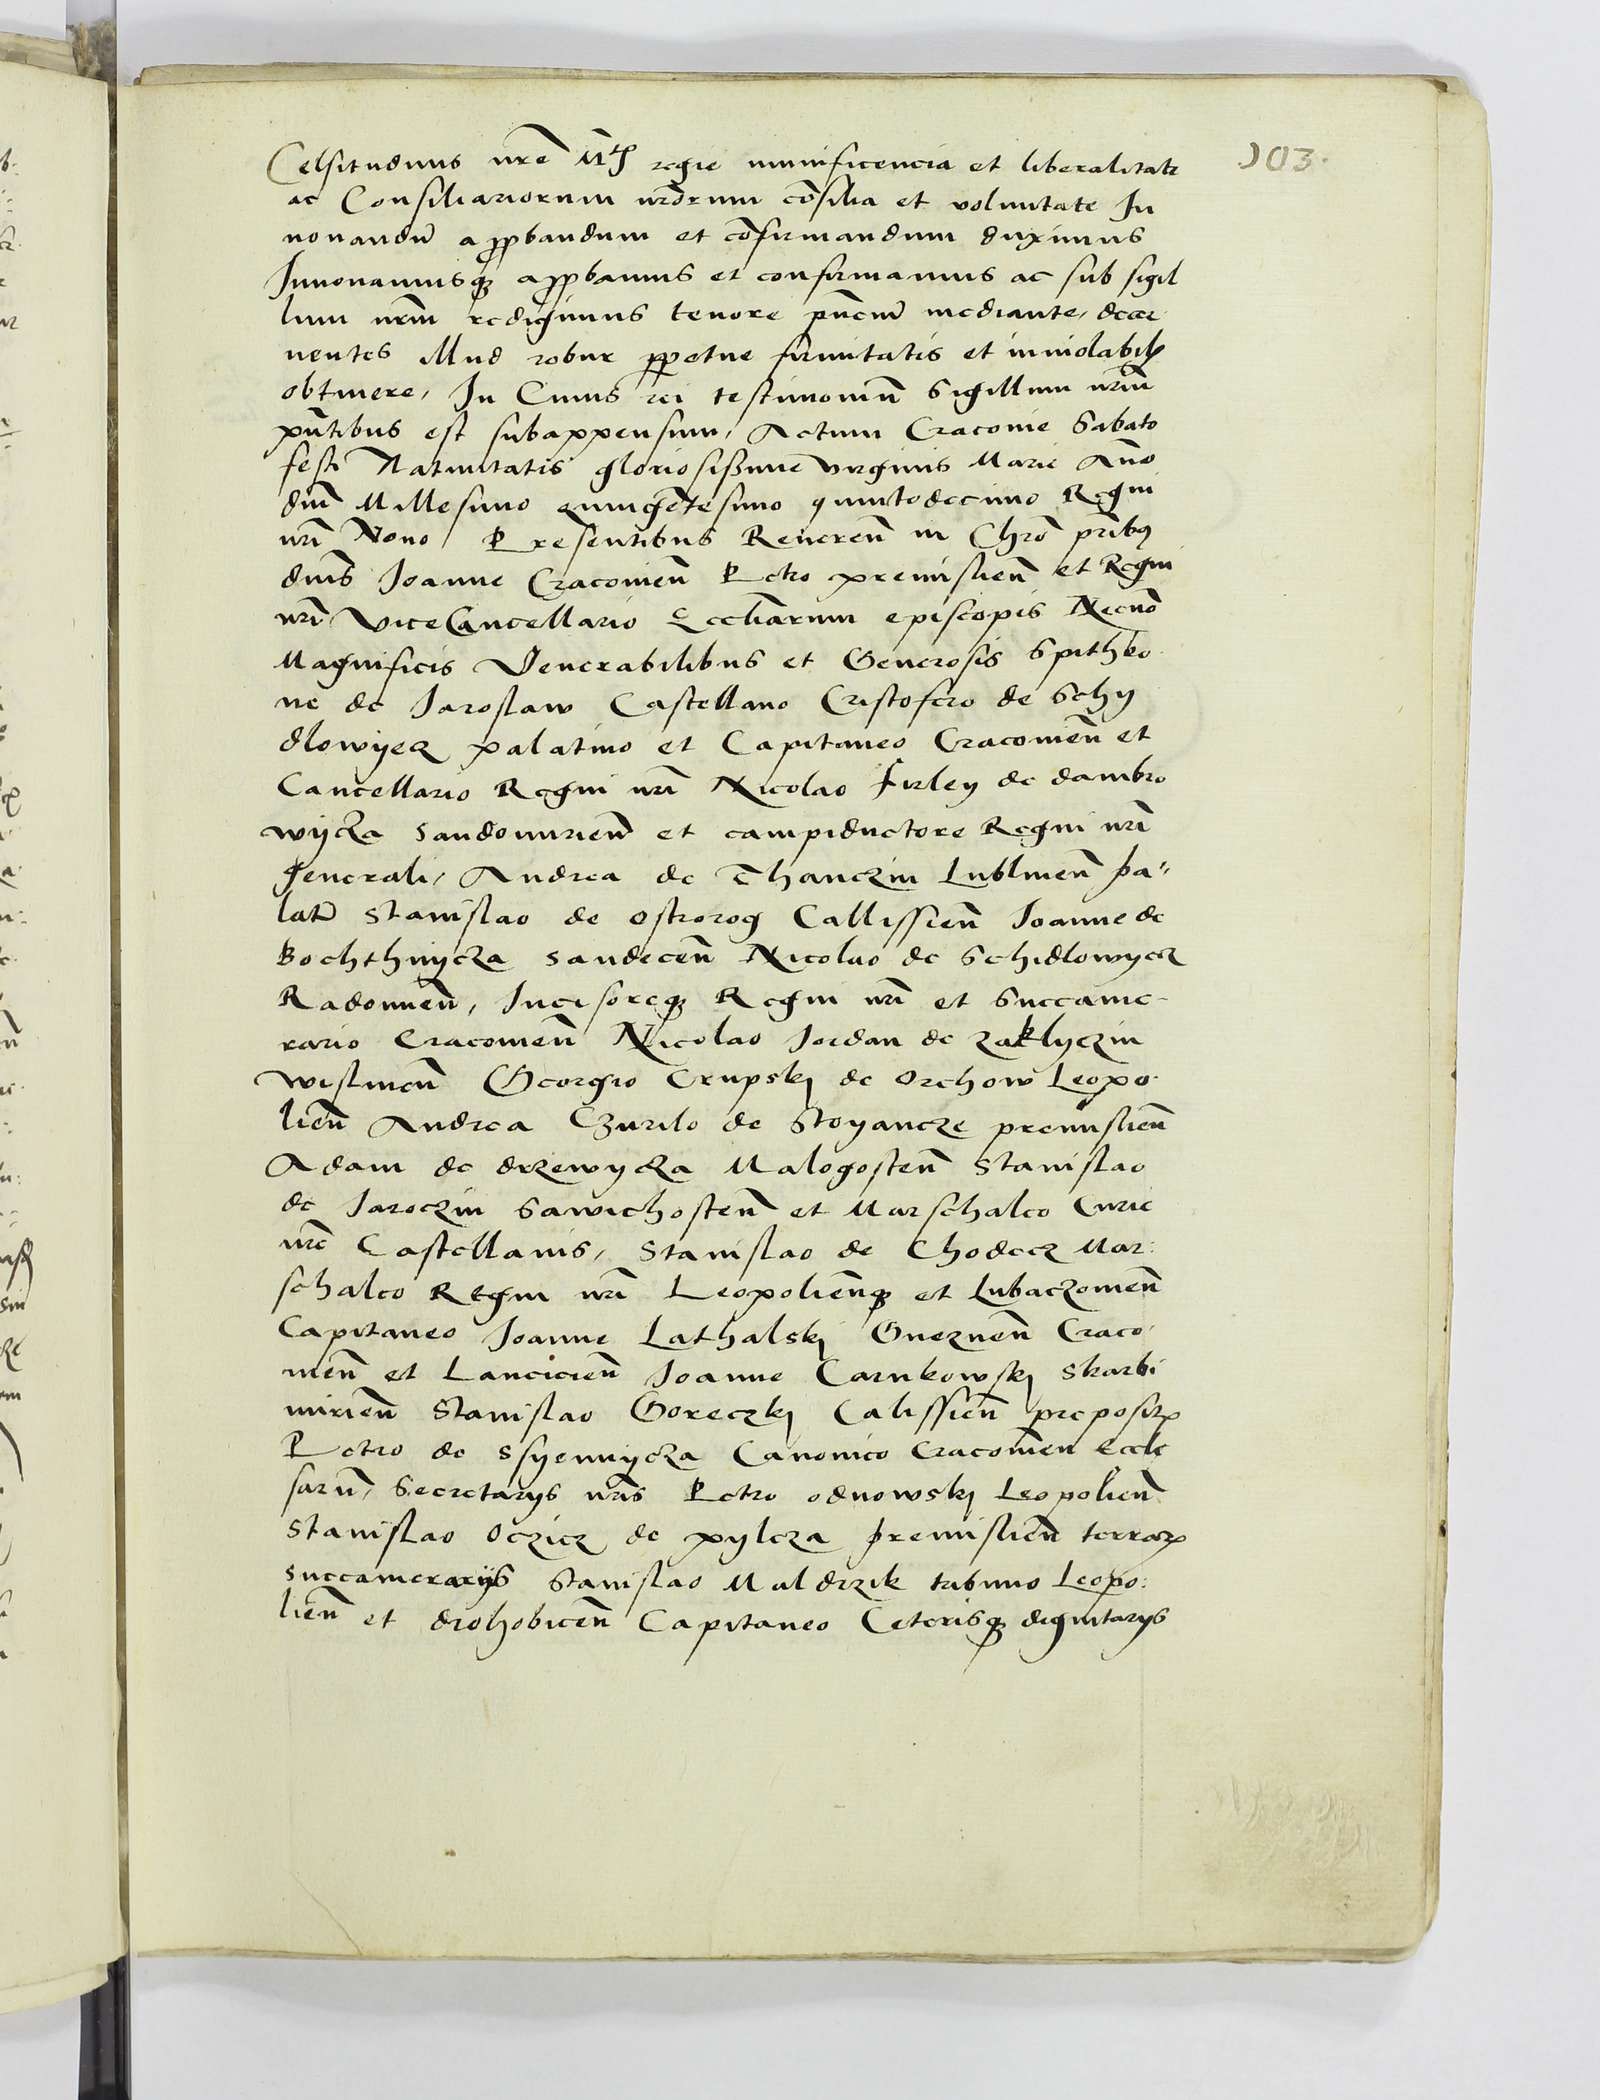 Celsitudinis nrē Mtis regie munificencia et liberalitate 103.
ac Consiliariorum nrōrum cōsilia et voluntate In
novandū approbandum et cōfirmandum duximus
Innovamusq approbamus et confirmamus ac sub sigil
lum nrm̄ redigimus tenore pn̄ciū mediante, decer
nentes illud robur perpetue firmitatis et inviolabilis
obtinere, In Cuius rei testimoniū Sigillum nrm̄
pn̄tibus est subappensum, Actum Cracovie Sabato
festi Nativitatis gloriosissime virginis Marie Año
dn̄i Millesimo quingētesimo quintodecimo Regni
nrī Nono, Presentibus Reveren̄ in Chrō prībus
dnīs Joanne Cracovien̄ Petro premislien̄ et Regni
nrī ViceCancellario Eccliārum episcopis Necnō
Magnificis Venerabilibus et Generosis Spithko
ne de Jaroslaw Castellano Cristofero de Schy
dlowyecz palatino et Capitaneo Cracovien̄ et
Cancellario Regni nrī Nicolao firley de dambro
wycza Sandomirien̄ et campiductore Regni nrī
generali, Andrea de Thanczin Lublinen̄ pa-
latī Stanislao de Ostrorog Callissien̄ Joanne de
Bochthnycza Sandecen̄ Nicolao de Schidlowycz
Radomien̄, Incisoreq Regni nrī et Succame-
rario Cracovien̄ Nicolao Jordan de Zaklyczin
Wislinen̄ Georgio Crupski de Orchow Leopo-
lien̄ Andrea Czurilo de Stoyancze premislien̄
Adam de drzewycza Malogosten̄ Stanislao
de Jaroczin Sawichosten̄ et Marschalco Curie
nrē Castellanis, Stanislao de Chodecz Mar:
schalco Regni nrī Leopolien̄q et Lubaczovien̄
Capitaneo Joanne Lathalski Gneznen̄ Craco
vien̄ et Lancicien̄ Joanne Carnkowski Skarbi
mirien̄ Stanislao Goreczki Calissien̄ prepositis
Petro de Ssyennycza Canonico Cracovien̄ Eccle
siarū, Secretarys nrīs Petro odnowski Leopolien̄
Stanislao Oczicz de pylcza premislien̄ terrarum
succamerarijs Stanislao Maldrzik tribuno Leopo:
lien̄ et drohobicen̄ Capitaneo Ceterisq dignitarys